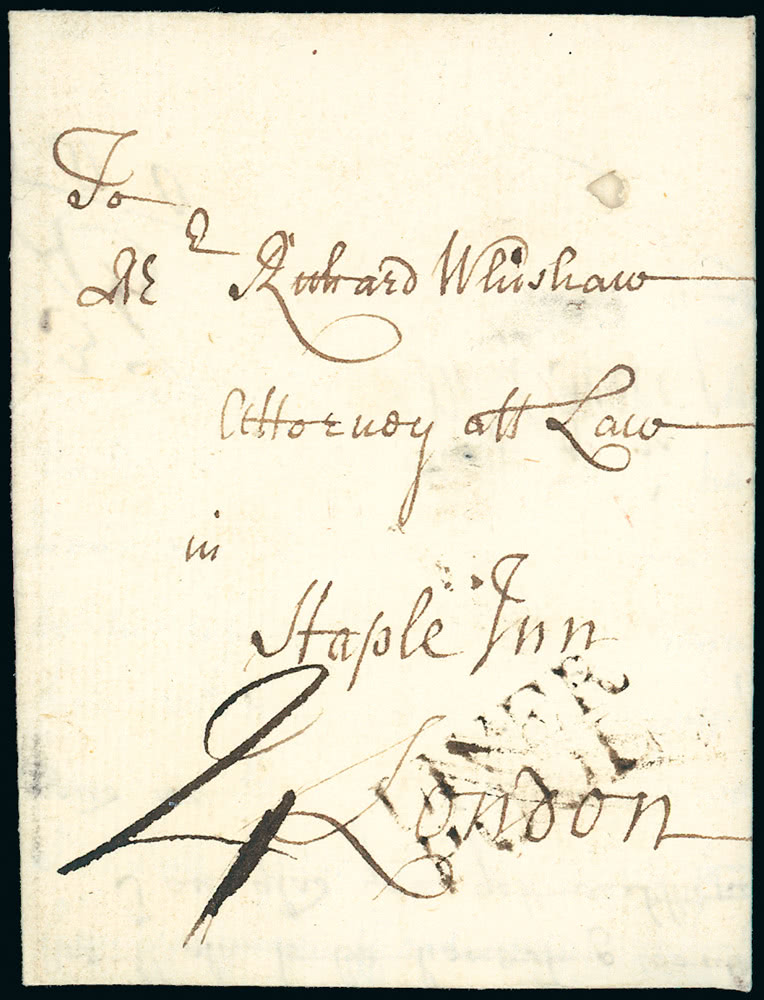 To
Mr Richard Whishaw
Attorney att Law
in
Staple Inn
London
LIVER
4